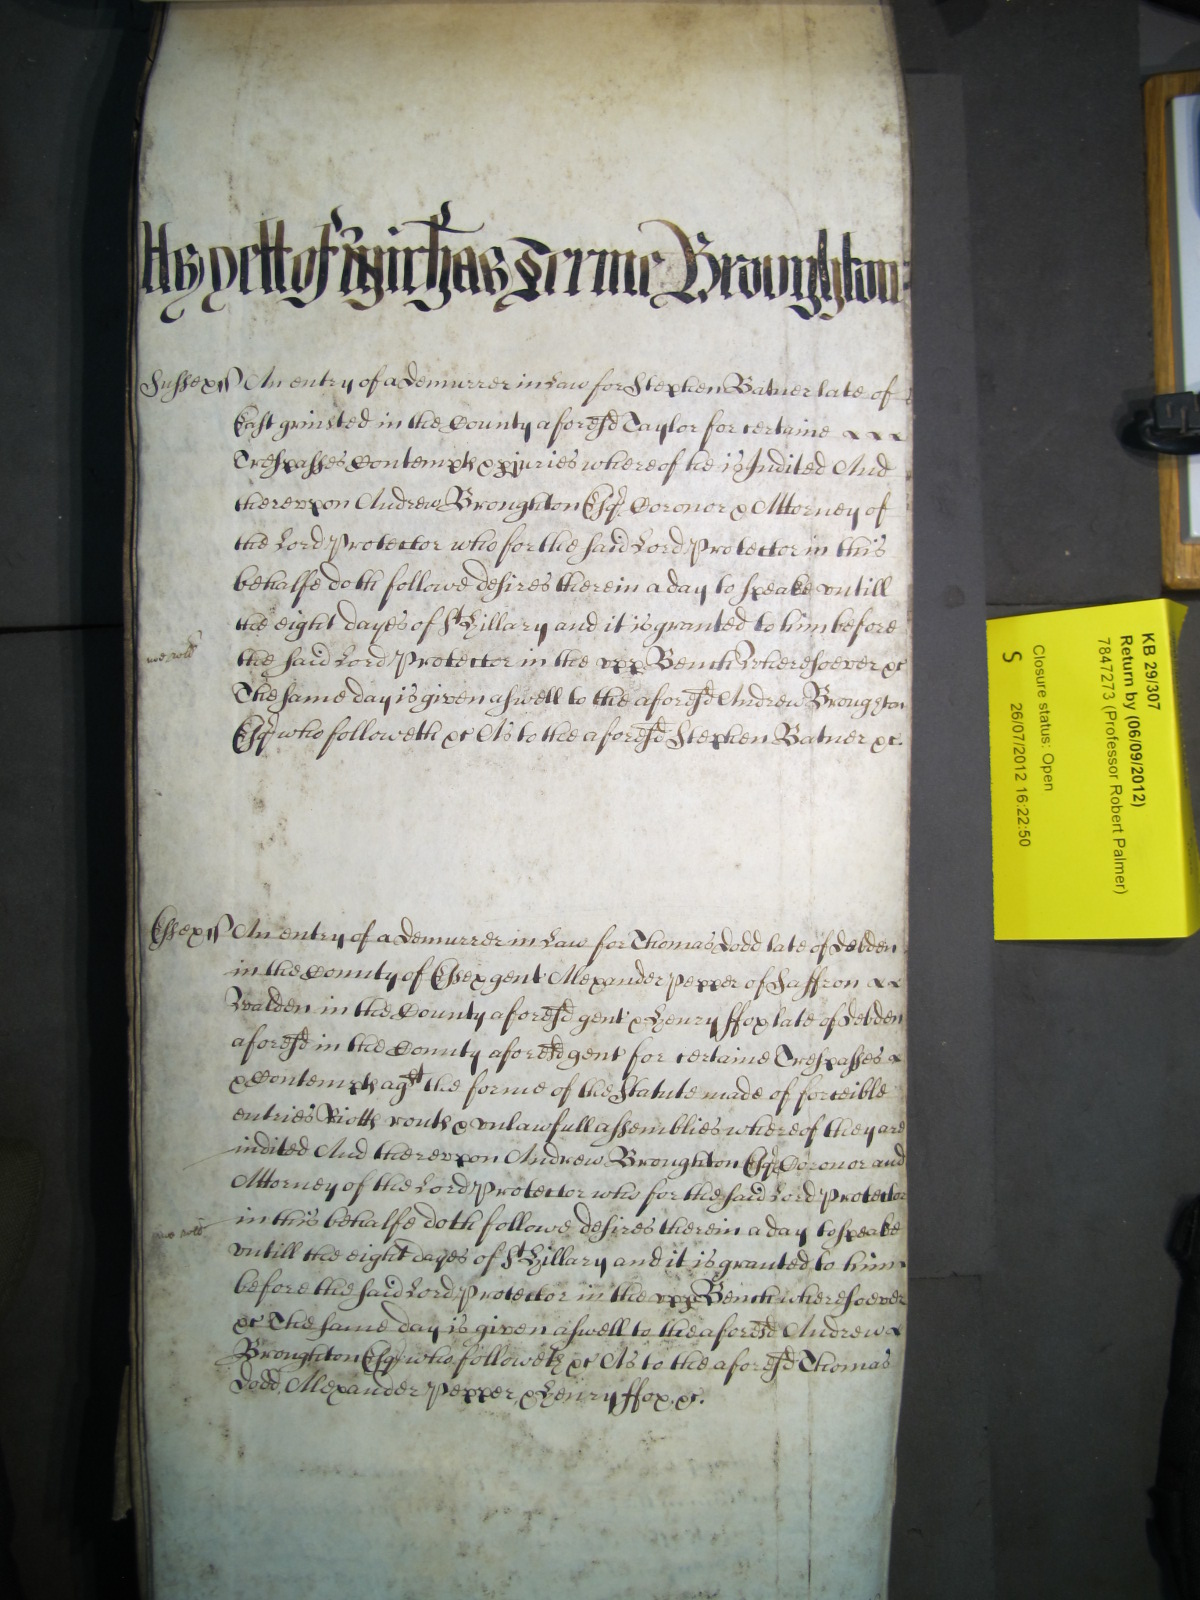 As yett of Mich'as Terme Broughton
Sussex ss An entry of a Demurrer in Law for Stephen Batner late of
East grinsted in the County aforesd Taylor for certaine
Trespasses Contempts & iniuries whereof he is Indited And
therevpon Andrew Broughton Esqr Coronor & Attorney of
the Lord Protector who for the said Lord Protector in this
behalfe doth followe desires therein a day to speake vntill
the eight dayes of St Hillary and it is granted to him before
the said Lord Protector in the vpp Bench Wheresoever &c
The same day is given aswell to the aforesd Andrew Broughton
Esqr who followeth &c As to the aforesd Stephen Batner &c.
Essex ss An entry of a Demurrer in Law for Thomas Dodd late of Debden
in the County of Essex gent Alexander Pepper of Saffron
Walden in the County aforesd gent & Henry ffox late of Debden
aforesd in the County aforesd gent for certaine Trespasses
& Contempts agst the forme of the Statute made of forceible
entries Riotts routs & vnlawfull assemblies whereof they are
indited And therevpon Andrew Broughton Esqr Coronor and
Attorney of the Lord Protector who for the said Lord Protector
in this behalfe doth followe desires therein a day to speake
vntill the eight dayes of St Hillary and it is granted to him
before the said Lord Protector in the vpp Bench wheresoever
&c The same day is given aswell to the aforesd Andrew
Broughton Esqr who followeth &c As to the aforesd Thomas
Dodd, Alexander Pepper, & Henry ffox. &c.
KB 29/307
Return by (06/09/2012)
7847273 (Professor Robert Palmer)
Closure status: Open
S 26/07/2012 16:22:50